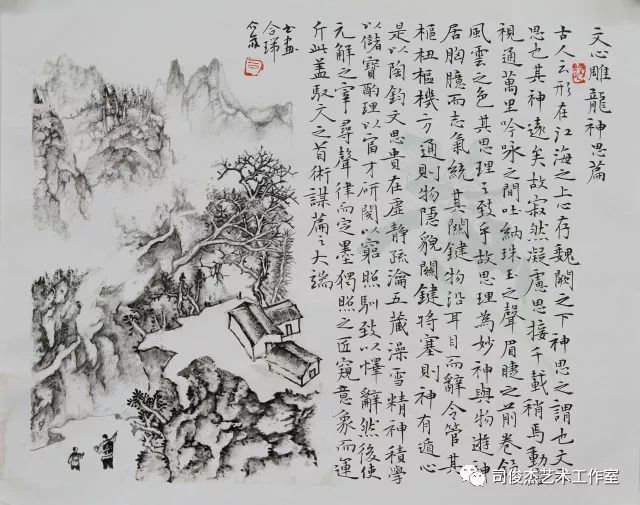 文心雕龍神思篇
古人云形在江海之上心存魏闕之下神思之謂也文
思也其神遠矣故寂然凝慮思接千載稍馬動
視通萬里吟咏之間吐納珠玉之聲眉睫之前卷
風雲之色其思理之致乎故思理為妙神與物遊神
居胸臆而志氣統其關鍵物沿耳目而辭令管其
樞杻樞機方通則物隱貌關鍵將塞則神有遁心
是以陶鈞文思貴在虛靜疏瀹五藏澡雪精神積學
以儲寶酌理以富才研閱以窮照馴致以懌辭然後使
元解之宰尋聲律而定墨獨照之匠窺意象而運
斤此蓋馭文之首術謀篇之大端
司俊杰艺术工作室